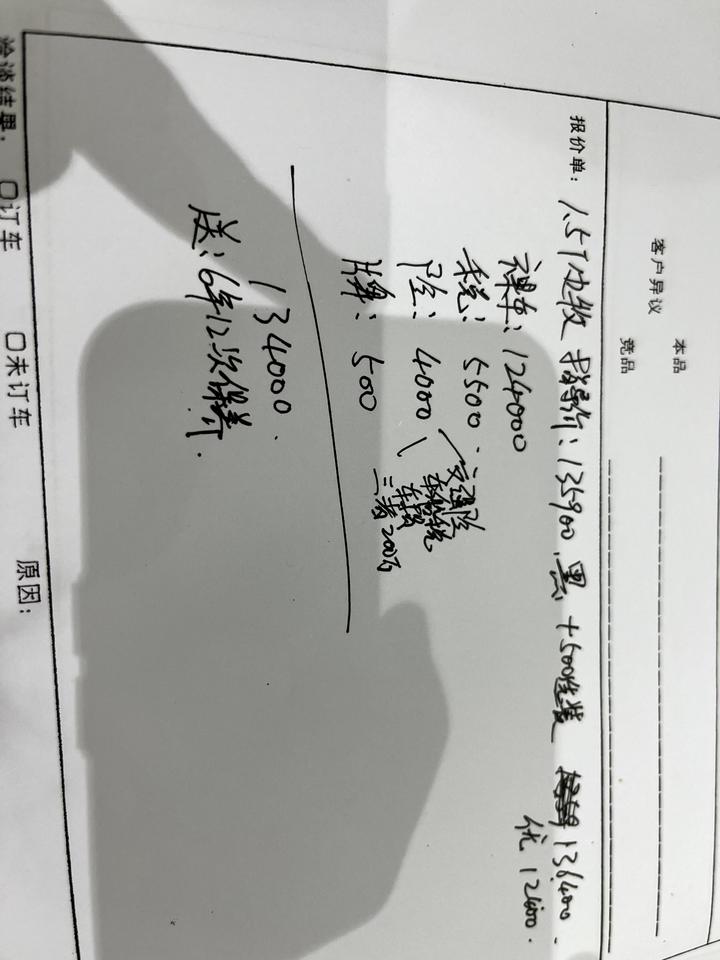 客户异议 本品
竞品
报价单: 1.5T 指导价: 135900 黑 +500选装 136400.
优 12400.
裸车: 124000
税: 5500.
险: 4000 交强险
车船税
车损
三者200万
牌: 500
134000.
送: 6年12次保养.
洽谈结果: 订车 未订车 原因: